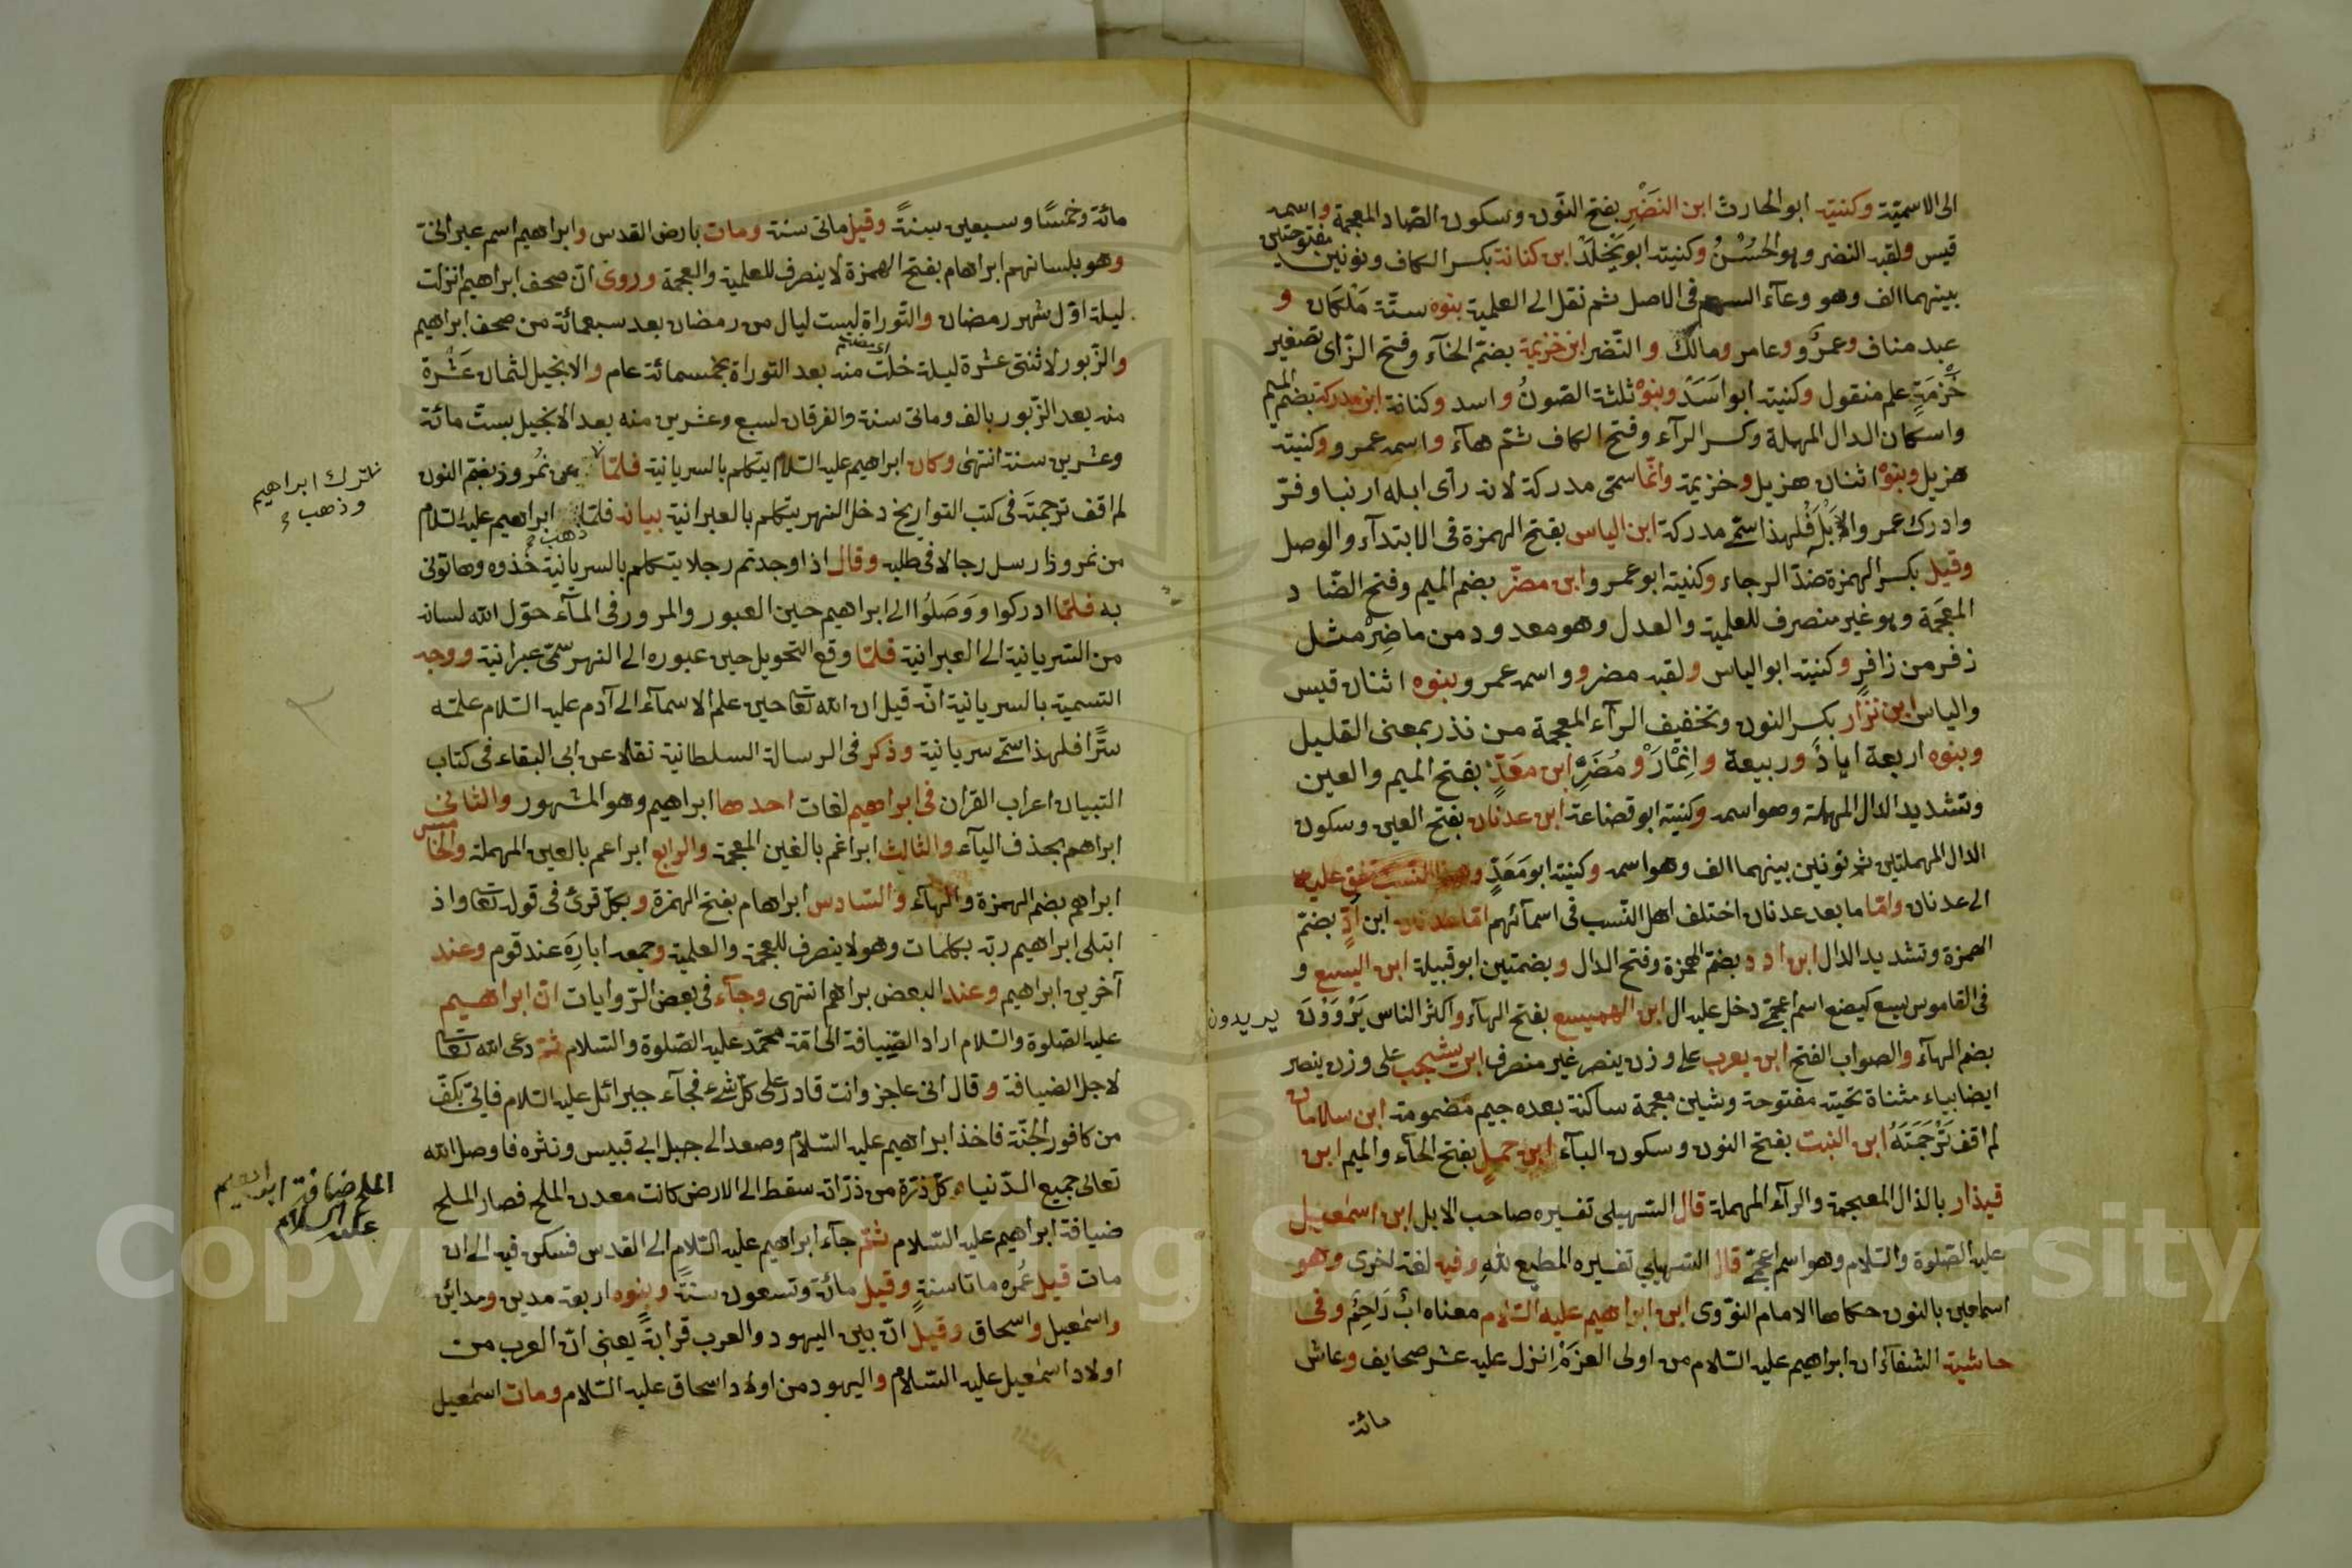 الى الاسمية وكنيته ابو الحارث ابن النَضْرِ بفتح النّون وسكون الضاد المعجمة واسمه
قيس ولقبه النضر وهو الحُسْنُ وكنيته ابو يَخْلَدْ ابن كنانة بكسر الكاف ونونين مفتوحتين
بينهما الف وهو وعآء السهم فى الاصل ثم نقل الى العلمية بنوه ستّة مَلْكَان و
عبد مناف وعمرٌو وعامر ومالك والنّضر ابن خزيمة بضمّ الخآء وفتح الزّاى تصغير
خَزْمَةٍ علم منقول وكنيته ابو اَسَدْ وبنوْه ثلثة الصّونُ واسد وكنانة ابن مدركة بضم الميم
واسكان الدال المهملة وكسر الرآء وفتح الكاف ثمّ هآء واسمه عمرو وكنيته
هزيل وبنوْه اثنان هزيل وخزيمة وانّما سمّى مدركة لانه رأى ابله ارنبا وفرّ
وادرك عمرو الاِبْلَ فلهذا سمّى مدركة ابن الياس بفتح الهمزة فى الابتدآء والوصل
وقيل بكسر الهمزة ضدّ الرجاء وكنيته ابو عمرو ابن مضر بضم الميم وفتح الضّاد
المعجَمة وهو غير منصرف للعلمية والعدل وهو معدود من ماضِرْ مثل
زفر من زافرٍ وكنيته ابو الياس ولقبه مضر وواسمه عمرو وبنوه اثنان قيس
والياس ابن نزار بكسر النون وتخفيف الرآء المعجمة من نذر بمعنى القليل
وبنوه اربعة ايادً وربيعة وانْمَارْ ومُضَرِ ابن معَدٍّ بفتح الميم والعين
وتشديد الدال المهملة وهو اسمه وكنيته ابو قضاعة ابن عدنان بفتح العين وسكون
الدال المهملتين ثم نونين بينهما الف وهو اسمه وكنيته ابو مَعَدٍّ وهذا النسب متفق عليه
الى عدنان وامّا ما بعد عدنان اختلف اهل النّسب فى اسمآئهم امّا عدنان ابن اُدٍّ بضمّ
الهمزة وتشديد الدال ابن ادد بضمّ الهمزة وفتح الدال وبضمتين ابو قبيلة ابن اليسع و
فى القاموس يسع كيضع اسم اعجمى دخل عليه ال ابن الهميسع بفتح الهآء واكثر الناس يَرْوَوْنَ يريدون
بضم الهآء والصواب الفتح ابن يعرب على وزن ينصر غير منصرف ابن يشجب على وزن ينصر
ايضا بياء مثناة تحتية مفتوحة وشين معجمة ساكنة بعده جيم مضمومة ابن سلامان
لم اقف تَرْجَمَتَهُ ابن النبت بفتح النون وسكون البآء ابن حملٍ بفتح الحآء والميم ابن
قيذار بالذال المعجمة والرآء المهملة قال السّهيلى تفسيره صاحب الابل ابن اسمٰعيل
عليه الصّلوة والسّلام وهو اسم اعجمىّ قال السّهيلي تفسيره المطيع للّهِ وفيه لغة اخرى وهو
اسماعين بالنون حكاها الامام النوّوى ابن ابراهيم عليه السّلام معناه ابٌ رَاحِمٌ وفى
حاشية الشفآء ان ابراهيم عليه السّلام من اولى العَزْمِ انزل عليه عشر صحايف وعاش
مائة
مائة وخمسًا وسبعين سنةً وقيل ماتى سنة ومات بارض القدس وابراهيم اسم عبرانىّ
وهو بلسانهم ابراهام بفتح الهمزة لا ينصرف للعلمية والعجمة وروى انّ صحف ابراهيم انزلت
ليلة اوّل شهر رمضان والتّوراة لست ليال من رمضان بعد سبعمائة من صحف ابراهيم
والزّبور لاثنتى عشرة ليلة خلت منه بعد التوراة بخمسمائة عام والانجيل لثمان عَشْرَة
منه بعد الزّبور بالف وماتى سنة والفرقان لسبع وعشرين منه بعد الانجيل بستّ مائة
وعشرين سنة انتهى وكان ابراهيم عليه السّلام يتكلم بالسريانية فلمّا عن نُمْروز بفتح النون
فترك ابراهيم
وذهب
لم اقف ترجمتَه فى كتب التواريخ دخل النهر يتكلم بالعبرانية بيانه فلمّا ذهب ابراهيم عليه السّلام
من نمروذ ارسل رجالا فى طلبه وقال اذا وجدتم رجلا يتكلم بالسريانية خُذوه وهاتونى
به فلمّا ادركوا ووَصَلُوا الى ابراهيم حين العبور والمرور فى المآء حوّل الله لسانه
من السّريانية الى العبرانية فلمّا وقع التحويل حين عبوره الى النهر سمّى عبرانية ووجه
التسمية بالسريانية انّه قيل ان الله تعالى حين علم الاسمآء الى آدم عليه السّلام علمه
سرًّا فلهذا سمّى سريانية وذكر فى الرسالة السلطانية نقلا عن ابى البقاء فى كتاب
التبيان اعراب القران فى ابراهيم لغات احدها ابراهيم وهو المشهور والثانى
ابراهم بحذف اليآء والثالث ابراغم بالغين المعجمة والرابع ابراعم بالعين المهملة والخامس
ابراهم بضم الهمزة والهآء والسّادس ابراهام بفتح الهمزة وبكلّ قرئ فى قوله تعالى واذ
ابتلى ابراهيم ربّه بكلمات وهو لا ينصرف للعجمة والعلمية وجمعه ابارِهَ عند قوم وعند
آخرين ابراهيم وعند البعض براهم انتهى وجآء فى بعض الرّوايات انّ ابراهيم
عليه الصّلوة والسّلام اراد الضّيافة الى امّة محمّد عليه الصّلوة والسّلام ثمّ دعى الله تعالى
لاجل الضيافة وقال انى عاجز وانت قادر على كلّ شئ فجآء جبرائل عليه السّلام فاتى بكفّ
من كافور الجنّة فاخذ ابراهيم عليه السّلام وصعد الى جبل ابى قبيس ونثره فاوصل الله
تعالى جميع الدّنيا كلّ ذرّة من ذرّاته سقط الى الارض كانت معدن الملح فصار الملح
الملح ضيافة ابراهيم
عليه السلام
ضيافة ابراهيم عليه السّلام ثمّ جآء ابراهيم عليه السّلام الى القدس فسكن فيه الى ان
مات قيل عُمْره ماتا سنةٍ وقيل مائة وتسعون سنةً وبنوه اربعة مدين ومداين
واسمٰعيل واسحاق وقيل انّ بين اليهود والعرب قرابةً يعنى انّ العرب من
اولاد اسمٰعيل عليه السّلام واليهود من اولاد اسحاق عليه السّلام ومات اسمٰعيل
Copyright © King Saud University